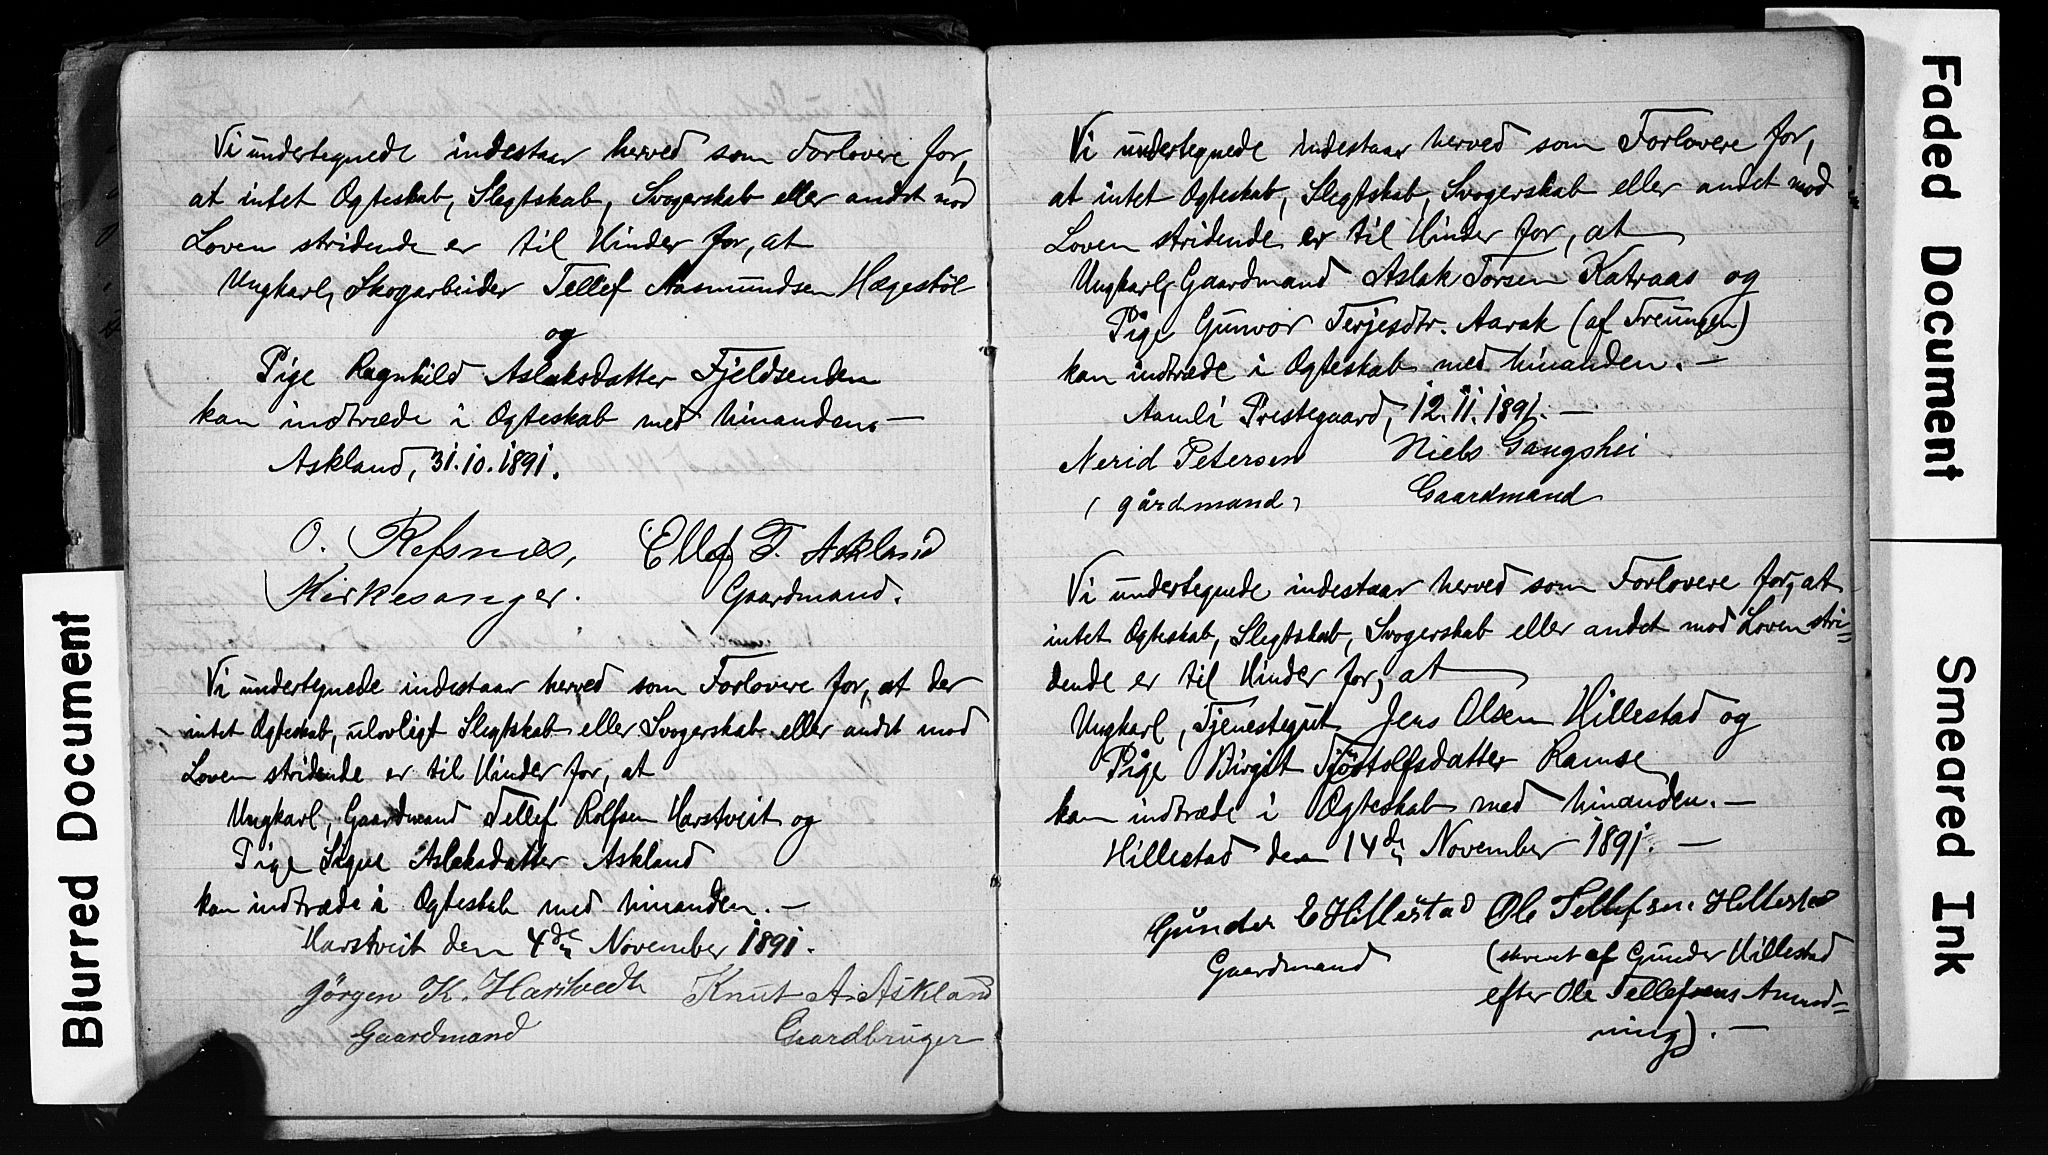 Vi undertegnede indestaar herved som Forlovere for,
at intet Ægteskab, Slegtskab, Svogerskab eller andet mod
Loven stridende er til Hinder for, at
Ungkarl, Skogarbeider Tellef Aasmundsen Hægestøl
og
Pige Ragnhild Aslaksdatter Fjeldsenden
kan indtræde i Ægteskab med hinanden. —
Askland, 31.10.1891.
O. Refsnes, Ellef T. Askland
Kirkesanger. Gaardmand.
Vi undertegnede indestaar herved som Forlovere for, at der
intet Ægteskab, ulovligt Slegtskab eller Svogerskab eller andet mod
Loven stridende er til Hinder for, at
Ungkarl, Gaardmand Tellef Rolfsen Harstveit og
Pige Signe Aslaksdatter Askland
kan indtræde i Ægteskab med hinanden. —
Harstveit den 4de November 1891.
Jørgen K. Harstvedt Knut A. Askland
Gaardmand Gaardbruger
Vi undertegnede indestaar herved som Forlovere for,
at intet Ægteskab, Slegtskab, Svogerskab eller andet mod
Loven stridende er til Hinder for, at
Ungkarl, Gaardmand Aslak Torsen Katraas og
Pige Gunvor Terjesdtr. Aarak (af Treungen)
kan indtræde i Ægteskab med hinanden. —
Aamli Prestegaard, 12.11.1891. —
Nerid Petersen Niels Gangshei
(gårdmand) Gaardmand
Vi undertegnede indestaar herved som Forlovere for, at
intet Ægteskab, Slegtskab, Svogerskab eller andet mod Loven stri=
dende er til Hinder for, at
Ungkarl, Tjenestegut Jens Olsen Hillestad og
Pige Birgit Tjøstolfsdatter Ramse
kan indtræde i Ægteskab med hinanden. —
Hillestad den 14de November 1891. —
Gunder E Hillestad Ole Tellefsen Hillestad
Gaardmand (skrevet af Gunder Hillestad
efter Ole Tellefsens Anmod=
ning). —
Blurred Document
Faded Document
Smeared Ink